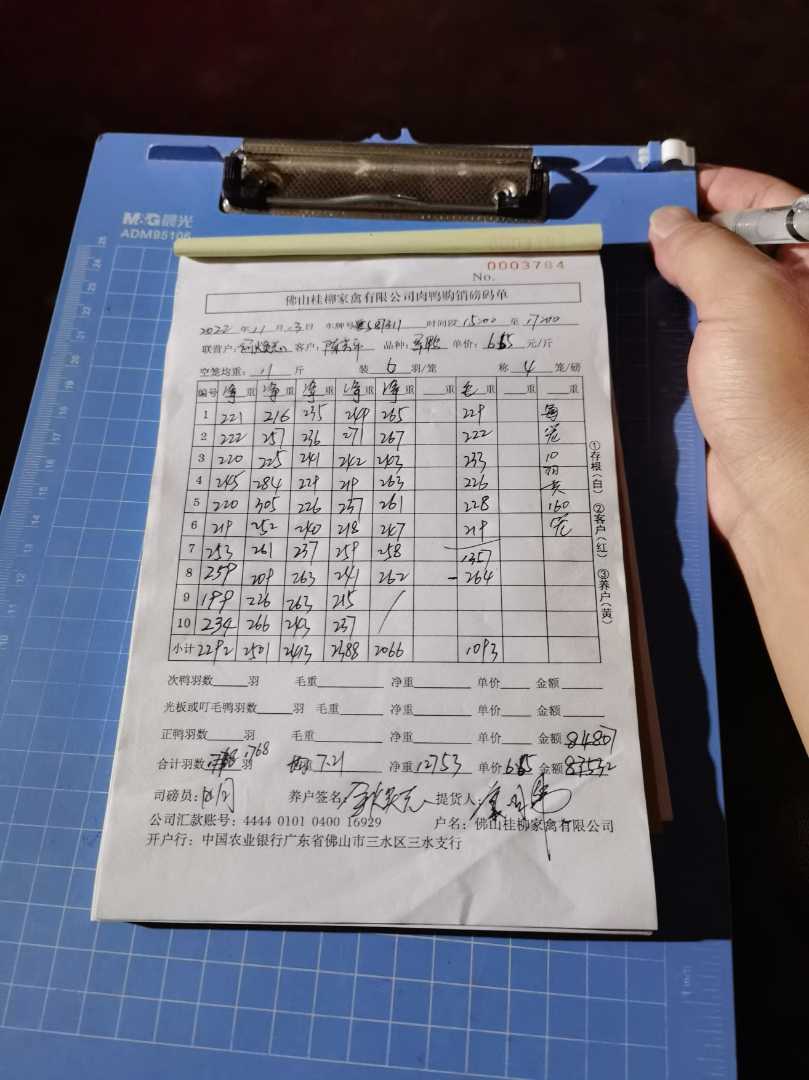 M&G晨光
ADM95106
0003764
No.
佛山桂柳家禽有限公司肉鸭购销磅码单
2022年11月13日 车牌号 时间段15:00至17:00
联营户: 客户: 品种: 单价:6.65元/斤
空笼均重:11斤 装6羽/笼 称4笼/磅
编号 净重 净重 净重 净重 净重 重 毛重 重 重
1 221 216 235 249 265 229 每
2 222 257 236 271 267 222 笼
3 220 225 241 242 243 233 10
4 245 284 229 219 263 226 羽共
5 220 305 226 237 261 228 160
6 219 252 240 218 247 219 笼
7 253 261 237 259 258 1357
8 259 209 263 241 262 -264
9 199 226 263 215 /
10 234 266 243 237 /
小计 2292 2501 2413 2388 2066 1093
次鸭羽数 羽 毛重 净重 单价 金额
光板或叮毛鸭羽数 羽 毛重 净重 单价 金额
正鸭羽数 羽 毛重 净重 单价 金额 84807
合计羽数 1768 羽 均重 7.21 净重 12753 单价 6.65 金额 83532
司磅员: 养户签名: 提货人:
公司汇款账号:4444 0101 0400 16929 户名:佛山桂柳家禽有限公司
开户行:中国农业银行广东省佛山市三水区三水支行
①存根(白) ②客户(红) ③养户(黄)